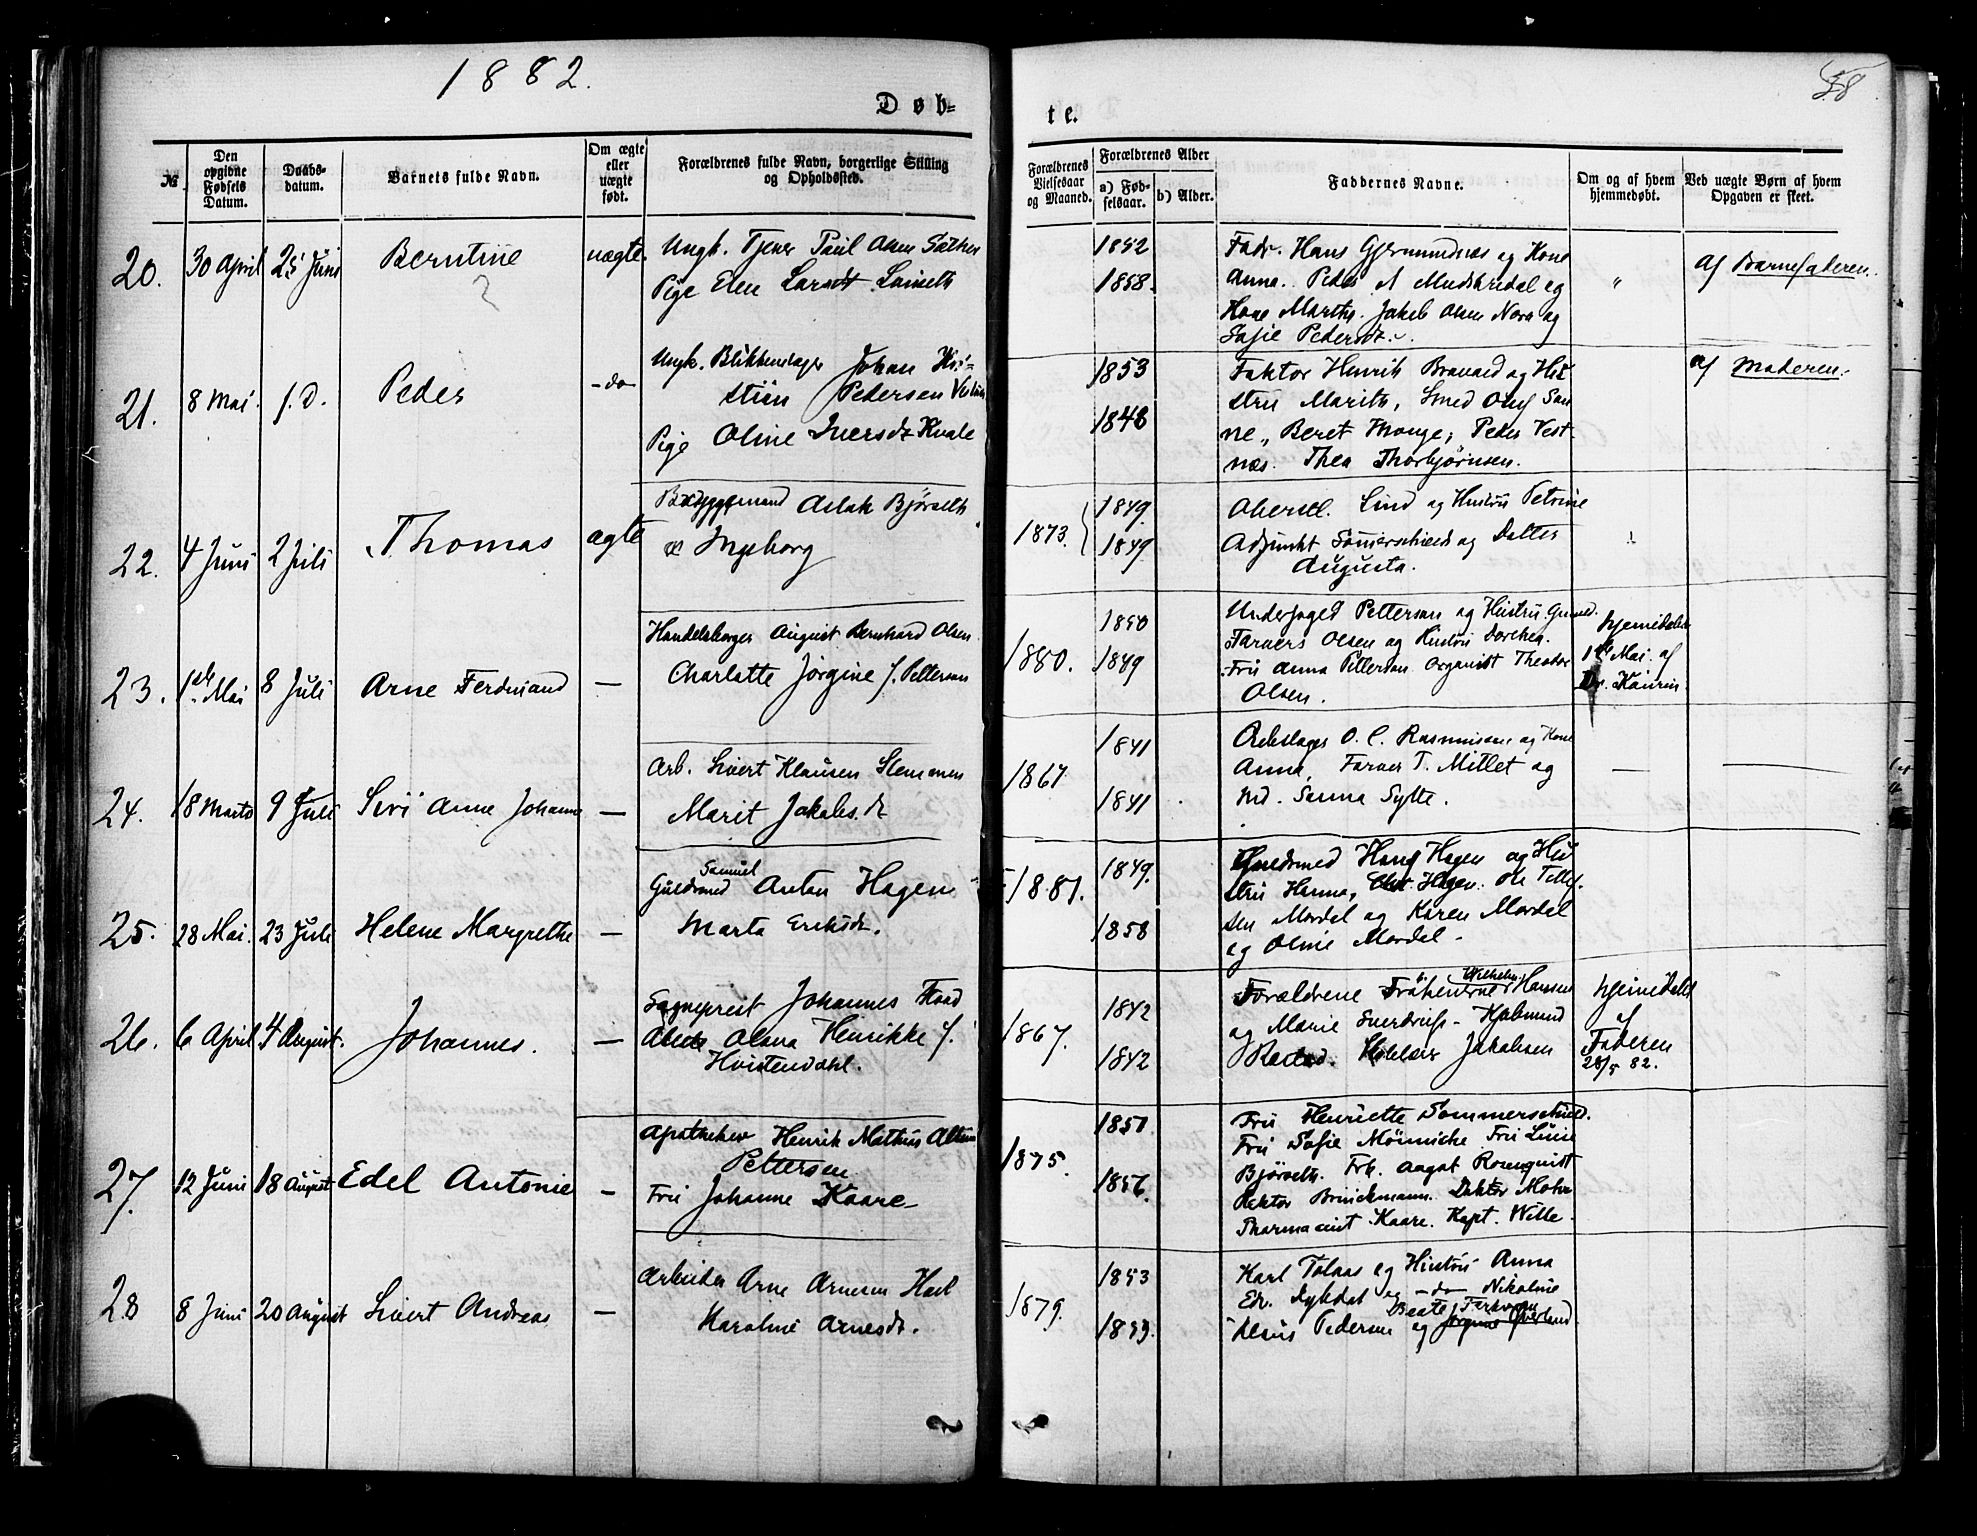 1882.
58
Døb-
te.
№
Den opgivne Fødsels Datum.
Daabs-datum.
Barnets fulde Navn.
Om ægte eller uægte født.
Forældrenes fulde Navn, borgerlige Stilling og Opholdssted.
Forældrenes Vielsesaar og Maaned.
Forældrenes Alder
a) Fødselsaar.
b) Alder.
Faddernes Navne.
Om og af hvem hjemmedøbt.
Ved uægte Børn af hvem Opgaven er skeet.
20. 30 April 25 Juni Berntine uægte.
Ungk. Tjener Paul Olsen
Pige Elen Larsdt.
1852
1858.
Fadr. Hans Gjermundnes og Kone
Anna. Peder og
Kone Marthe. Jakob Olsen Nora og
Sofie Pedersdt.
"
Af Barnefaderen.
21. 8 Mai. f. D. Peder -do-
Ungk. Blikkenslager Johan Kri-
stian Pedersen
Pige Oline Iversdt Kvale
1853
1848
Faktor Henrik Bravard og Hu
stru Marith, Smed Oluf San
ne, Beret Monge, Peder Vest-
nes. Thea Thorbjørnsen.
af Moderen.
22. 4 Juni 2 Juli Thomas ægte
Aslak Bjørseth
Ingeborg
1873.
1849.
1849
Lind og Hustru Petrine
Adjunkt Sommerschield og Datter
Augusta.
23. 1ste Mai 8 Juli Arne Ferdinand —
Handelsborger August Bernhard Olsen
Charlotte Jørgine f. Petterson
1880.
1850
1849
Underfoged Petterson og Hustru
Farvers Olsen og Hustru Dorthea.
Fru Anna Petterson Organist Theodor
Olsen.
hjemmedøbt
1ste Mai af
Dr. Kaurin.
24. 18 Marts 9 Juli Sivi Anne Johanne —
Arb. Sivert Klausen
Marit Jakobsdt
1867.
1841
1841
O. C. Rasmussen og Kone
Anna, Farver T. Mittet og
Md. Sanna Sylte.
—
25. 28 Mai. 23 Juli Helene Margrethe —
Samuel
Guldsmed Anton Hagen
Marta Eriksdt.
1881.
1849.
1858
Guldsmed Hans Hagen og Hu
stru Hanna, Chr. Hagen. Ole Tollef
sen Mordal og Karen Mordal
og Oline Mordal -
26. 6 April 4 August. Johannes. —
Sogneprest Johannes Flood
Olava Henrikke f.
Hvistendahl.
1867.
1842
1842
Wilhelm.
Forældrene Frøkenerne Hansen
og Marie Sverdrup - Hjalmund
Jakobsen
hjemmedøbt
af
Faderen
28/5 82.
27. 12 Juni 18 August Edel Antonie —
Apotheker Henrik Mathias
Pettersen
Fru Johanne Kaare-
1875.
1851
1856.
Fru Henriette Sommerschield.
Fru Sofie Mönniche Fru Lina
Bjørseth. Frk. Aagot Rosenqvist
Rektor Brinckmann. Doktor Mohn
Pharmaceut Kaare. Kapt. Wille.
28 8 Juni 20 August Sivert Andreas —
Arbeider Arne Arnesen
Karoline Arnesdt.
1879.
1853
1853.
Karl Tolaas og Hustru Anna
Edv. og -do- Nikoline
Beate
Pedersen og Jørgine